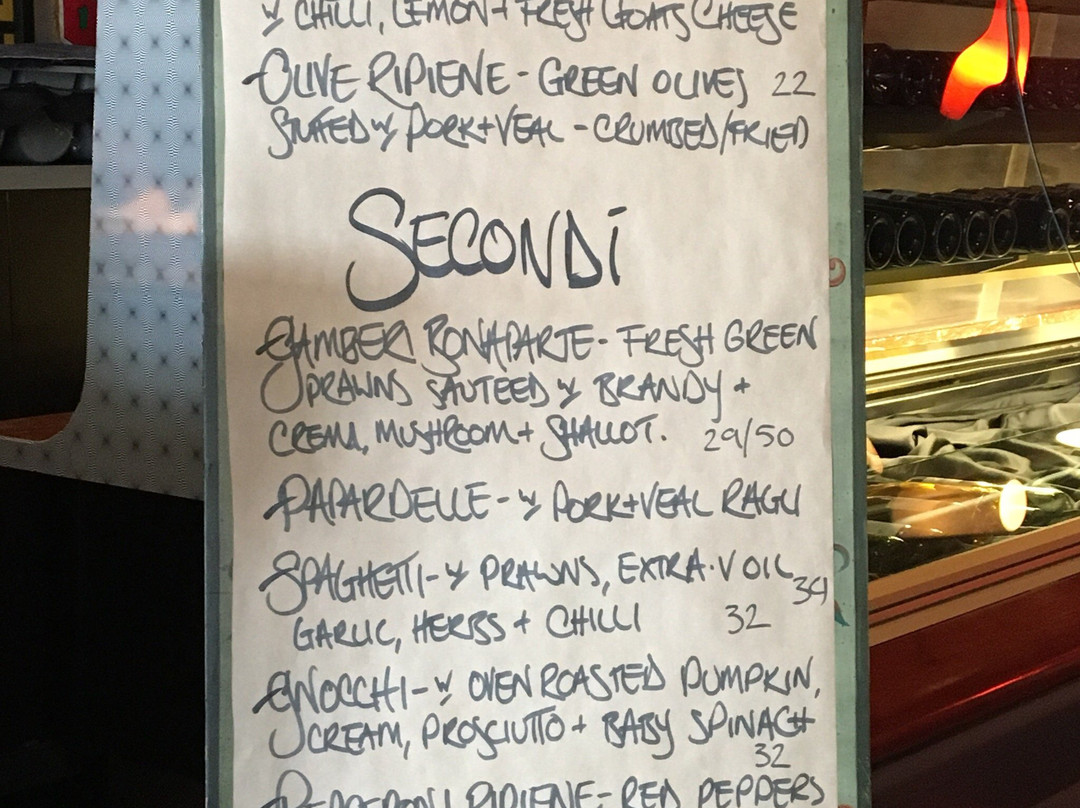 w CHILLI, LEMON + FRESH GOATS CHEESE
OLIVE RIPIENE - GREEN OLIVES 22
STUFFED w PORK + VEAL - CRUMBED/FRIED
SECONDI
GAMBERI BONAPARTE - FRESH GREEN
PRAWNS SAUTEED w BRANDY +
CREMA, MUSHROOM + SHALLOT. 29/50
PAPARDELLE - w PORK + VEAL RAGU
SPAGHETTI - w PRAWNS, EXTRA.V OIL, 34
GARLIC, HERBS + CHILLI 32
GNOCCHI - w OVEN ROASTED PUMPKIN,
CREAM, PROSCIUTTO + BABY SPINACH
32
PEPPERONI RIPIENE - RED PEPPERS